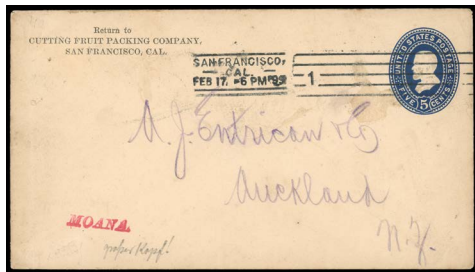 Return to
CUTTING FRUIT PACKING COMPANY,
SAN FRANCISCO, CAL.
SAN FRANCISCO,
CAL.
FEB 17. -6 PM '99
1
UNITED STATES POSTAGE
FIVE 5 CENTS
A. J. Entrican & Co
Auckland
N.Z.
MOANA.